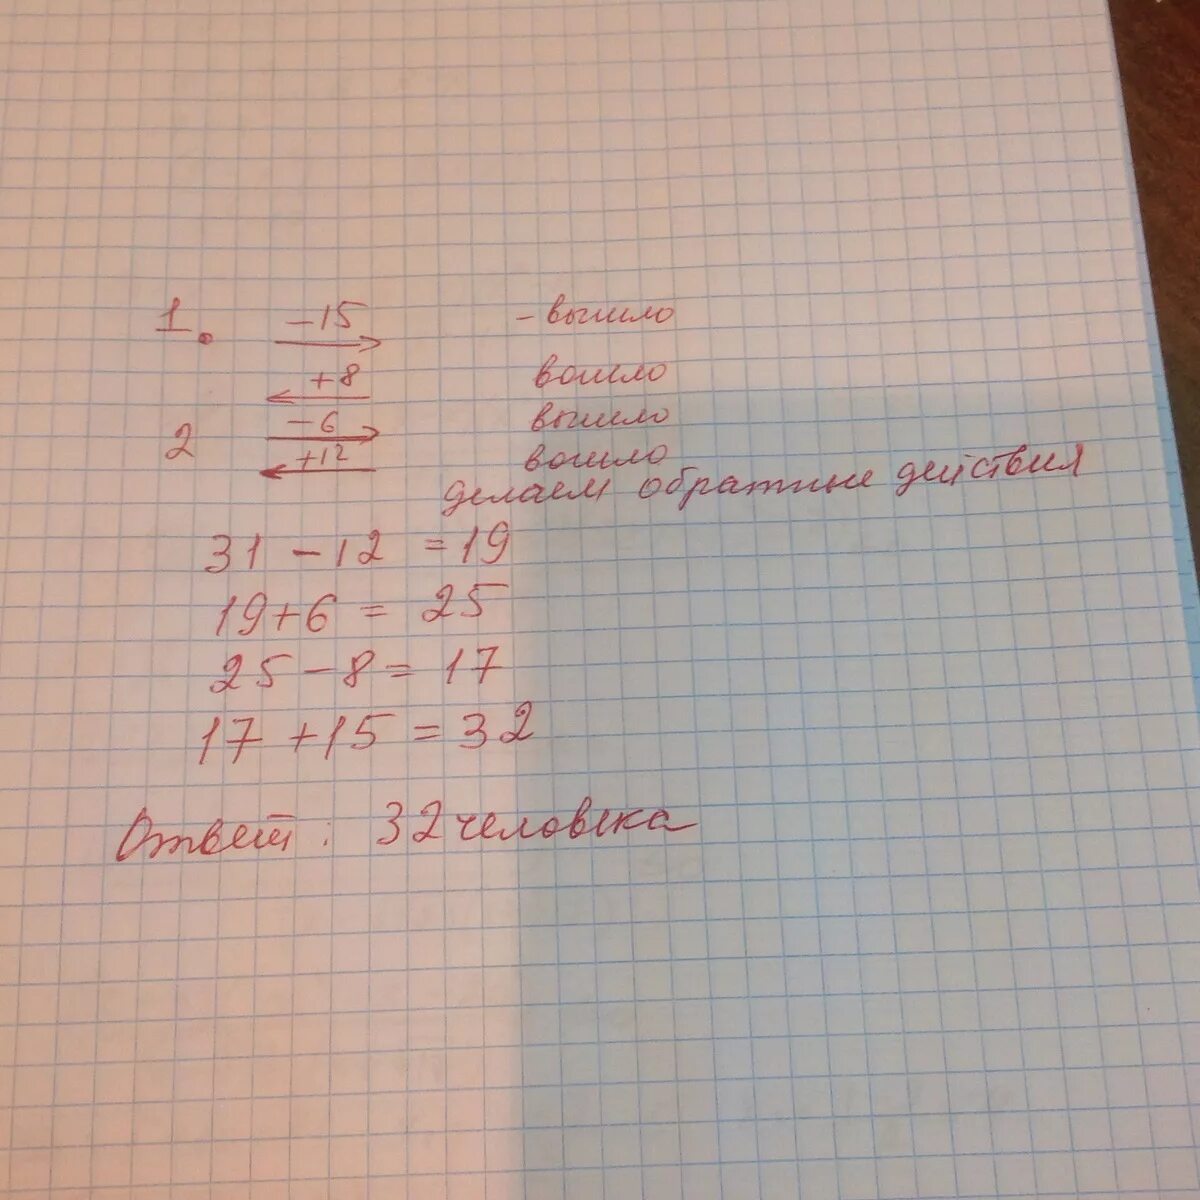 1. -15 - вышло
+8 вошло
2 -6 вышло
+12 вошло
делаем обратные действия
31 - 12 = 19
19+6 = 25
25-8 = 17
17 +15 = 32
Ответ: 32 человека